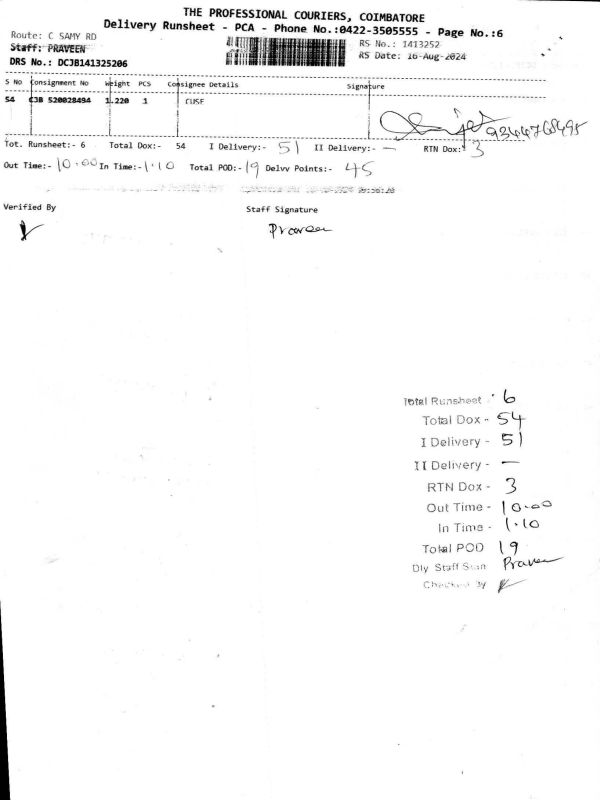 THE PROFESSIONAL COURIERS, COIMBATORE
Delivery Runsheet - PCA - Phone No.:0422-3505555 - Page No.:6
Route: C SAMY RD
RS No.: 1413252
Staff: PRAVEEN
RS Date: 16-Aug-2024
DRS No.: DCJB141325206
S No Consignment No Weight PCS Consignee Details Signature
54 CJB 520028494 1.220 1 CUSF
9344768495
Tot. Runsheet:- 6 Total Dox:- 54 I Delivery:- 51 II Delivery:- — RTN Dox:- 3
Out Time:- 10.00 In Time:- 1.10 Total POD:- 19 Delvv Points:- 45
Verified By Staff Signature
Praveen
Total Runsheet 6
Total Dox - 54
I Delivery - 51
II Delivery - —
RTN Dox - 3
Out Time - 10.00
In Time - 1.10
Total POD 19
Dly Staff Sign Praveen
Checked By